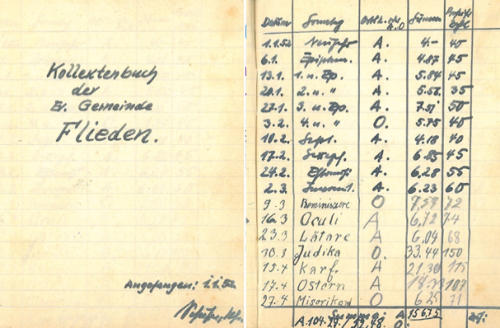 Kollektenbuch
der
Ev. Gemeinde
Flieden.
Angefangen: 1.1.52
Datum Sonntag A. O. Summe
1.1.52 Neujahr A. 4.- 40
6.1. Epiphan. A. 4.87 45
13.1. 1. n. Ep. A. 5.84 45
20.1. 2. n. " A. 5.56 35
27.1. 3. n. Ep. A. 7.51 50
3.2. 4. n. " O. 5.75 45
10.2. Sept. A. 4.18 40
17.2. Sexag. A. 6.85 45
24.2. Estomihi A. 6.28 55
2.3. Invocavit. A. 6.23 60
9.3 Reminiscere O 7,59 72
16.3 Oculi A 6,72 74
23.3 Lätare A 6.04 68
Judika O. 33.44 150
Karf. A 21,30 115
17.4 Ostern A 107
27.4 Misorikord O 6.25 71
A. 104.27